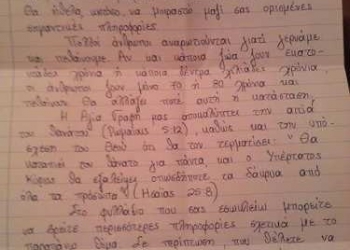 Θα ήθελα, ωστόσο, να μοιραστώ μαζί σας ορισμένες
σημαντικές πληροφορίες.
Πολλοί άνθρωποι αναρωτιούνται γιατί γερνάμε
και πεθαίνουμε. Αν και κάποια ζώα ζουν εκατο-
χρόνια ή κάποια δέντρα χιλιάδες χρόνια,
οι άνθρωποι ζουν μόνο 70 ή 80 χρόνια και
πεθαίνουν. Θα αλλάξει ποτέ αυτή η κατάσταση;
Η Αγία Γραφή μας αποκαλύπτει την αιτία
του θανάτου (Ρωμαίους 5:12), καθώς και την υπό-
σχεση του Θεού ότι θα τον τερματίσει: "Θα
καταπιεί τον θάνατο για πάντα, και ο Υπέρτατος
Κύριος θα εξαλείψει οπωσδήποτε τα δάκρυα από
όλα τα πρόσωπα" (Ησαΐας 25:8).
Στο φυλλάδιο που σας εσωκλείω μπορείτε
να βρείτε περισσότερες πληροφορίες σχετικά με το
παραπάνω θέμα. Σε περίπτωση που θέλετε να